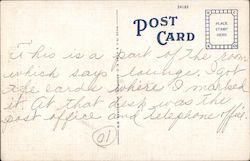 24183
POST CARD
PLACE
STAMP
HERE
This is a part of the room
which says lounge, I got
the cards where I marked
it. At that desk was the
post office and telephone office.